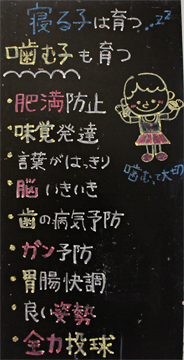 寝る子は育つ zz
噛む子も育つ
・肥満防止
・味覚発達
・言葉がはっきり
・脳いきいき
・歯の病気予防
・ガン予防
・胃腸快調
・良い姿勢
・全力投球
噛むって大切